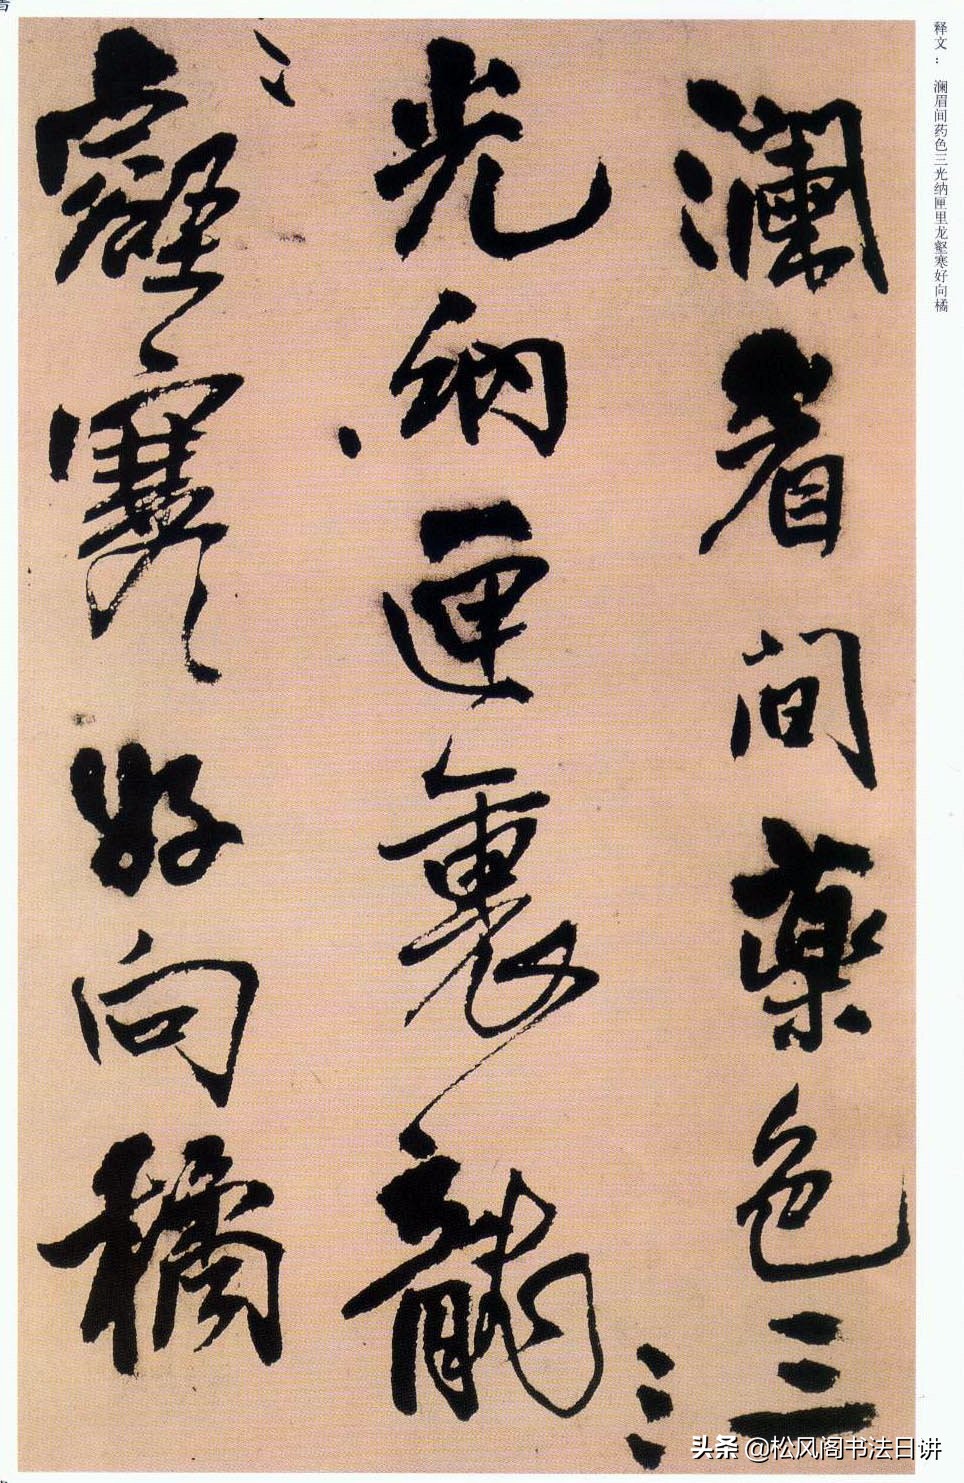 释文：　澜眉间药色三光纳匣里龙壑寒好向橘
澜眉间藥色三
光纳匣裏龍
壑寒好向橘
头条 @松风阁书法日讲